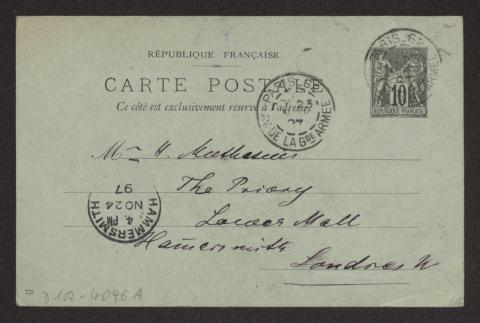 RÉPUBLIQUE FRANÇAISE
CARTE POSTALE
Ce côté est exclusivement réservé à l'adresse
PARIS 62
23
97
AV DE LA Gde ARMÉE
10
REPUBLIQUE FRANÇAISE
Mr H.
The Priory
Lower Mall
Hamersmith
Londres W
HAMMERSMITH
4. PM
NO 24
97
D 102-4046 A